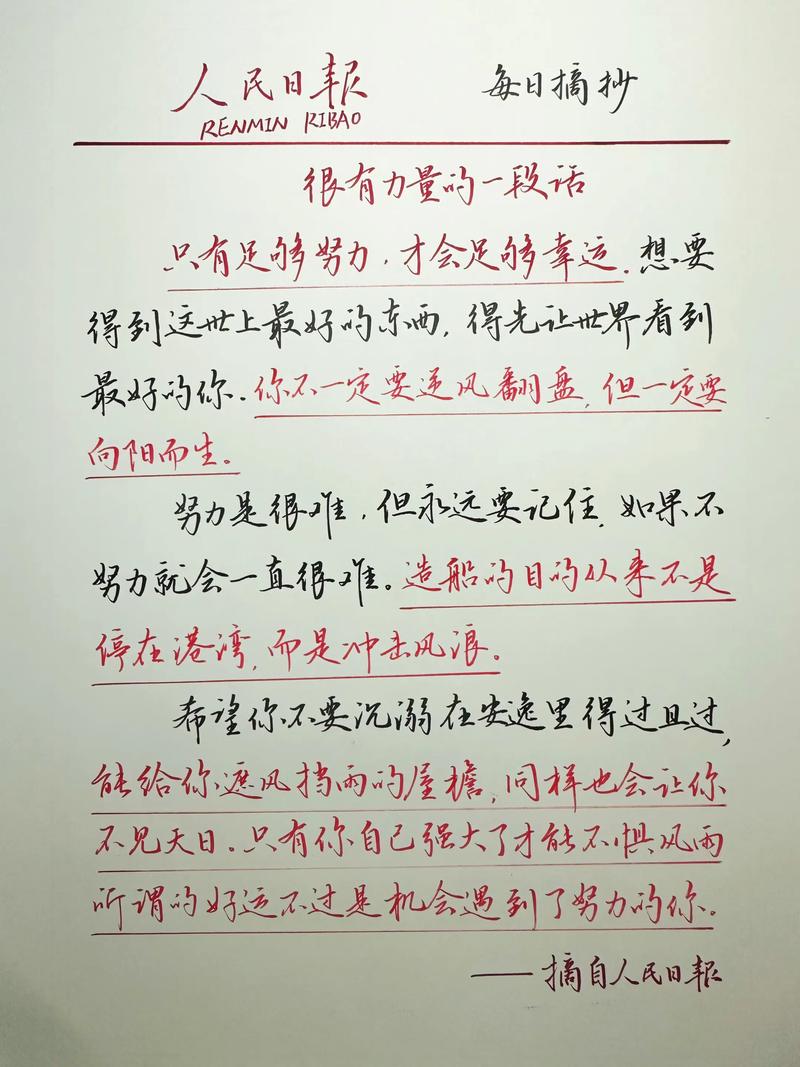 人民日報 每日摘抄
RENMIN RIBAO
很有力量的一段话
只有足够努力，才会足够幸运．想要
得到这世上最好的东西，得先让世界看到
最好的你．你不一定要逆风翻盘，但一定要
向阳而生。
努力是很难，但永远要记住，如果不
努力就会一直很难。造船的目的从来不是
停在港湾，而是冲击风浪。
希望你不要沉溺在安逸里得过且过，
能给你遮风挡雨的屋檐，同样也会让你
不见天日．只有你自己强大了才能不惧风雨
所谓的好运不过是机会遇到了努力的你．
——摘自人民日报